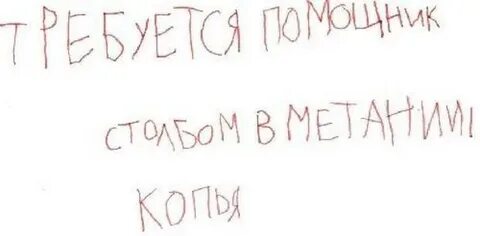 ТРЕБУЕТСЯ ПОМОЩНИК
СТОЛБОМ В МЕТАНИИ
КОПЬЯ